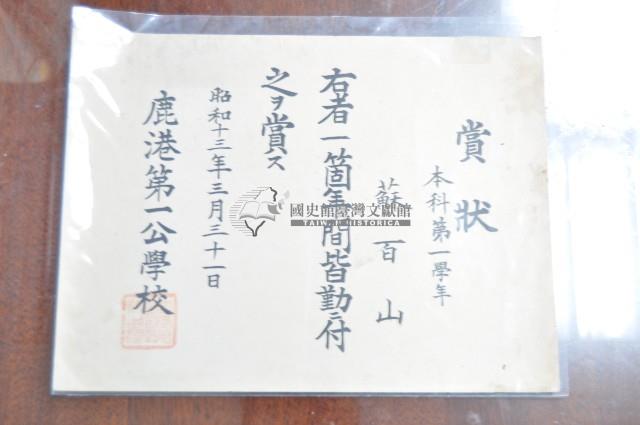 賞狀
本科第一學年
蘇百山
右者一箇年間皆勤ニ付
之ヲ賞ス
昭和十三年三月三十一日
鹿港第一公學校
國史館臺灣文獻館
TAIWAN HISTORICA